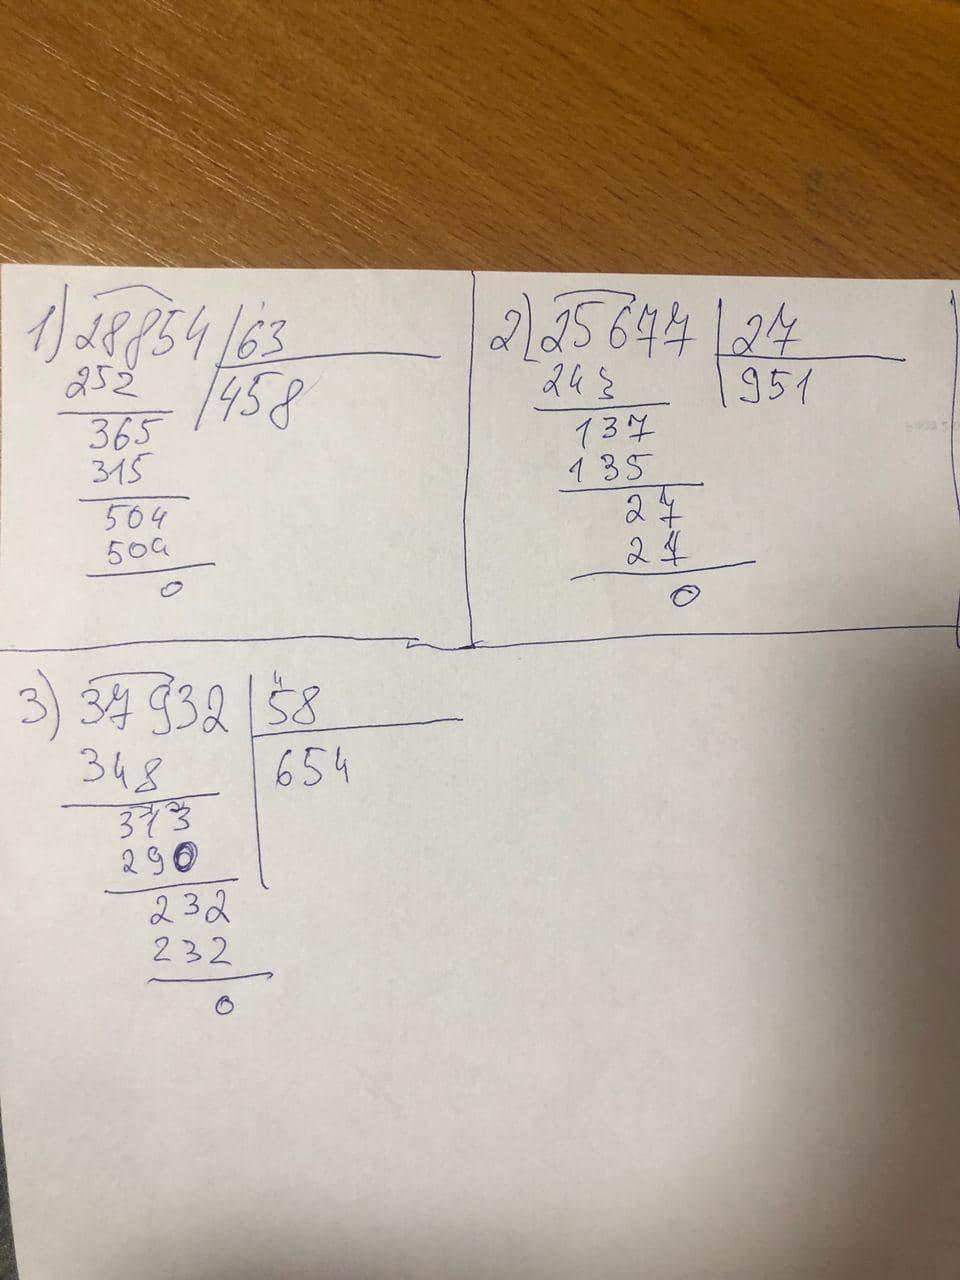 1) 28854 63
252 458
365
315
504
504
0
2) 25677 27
243 951
137
135
27
27
0
3) 37932 58
348 654
313
290
232
232
0